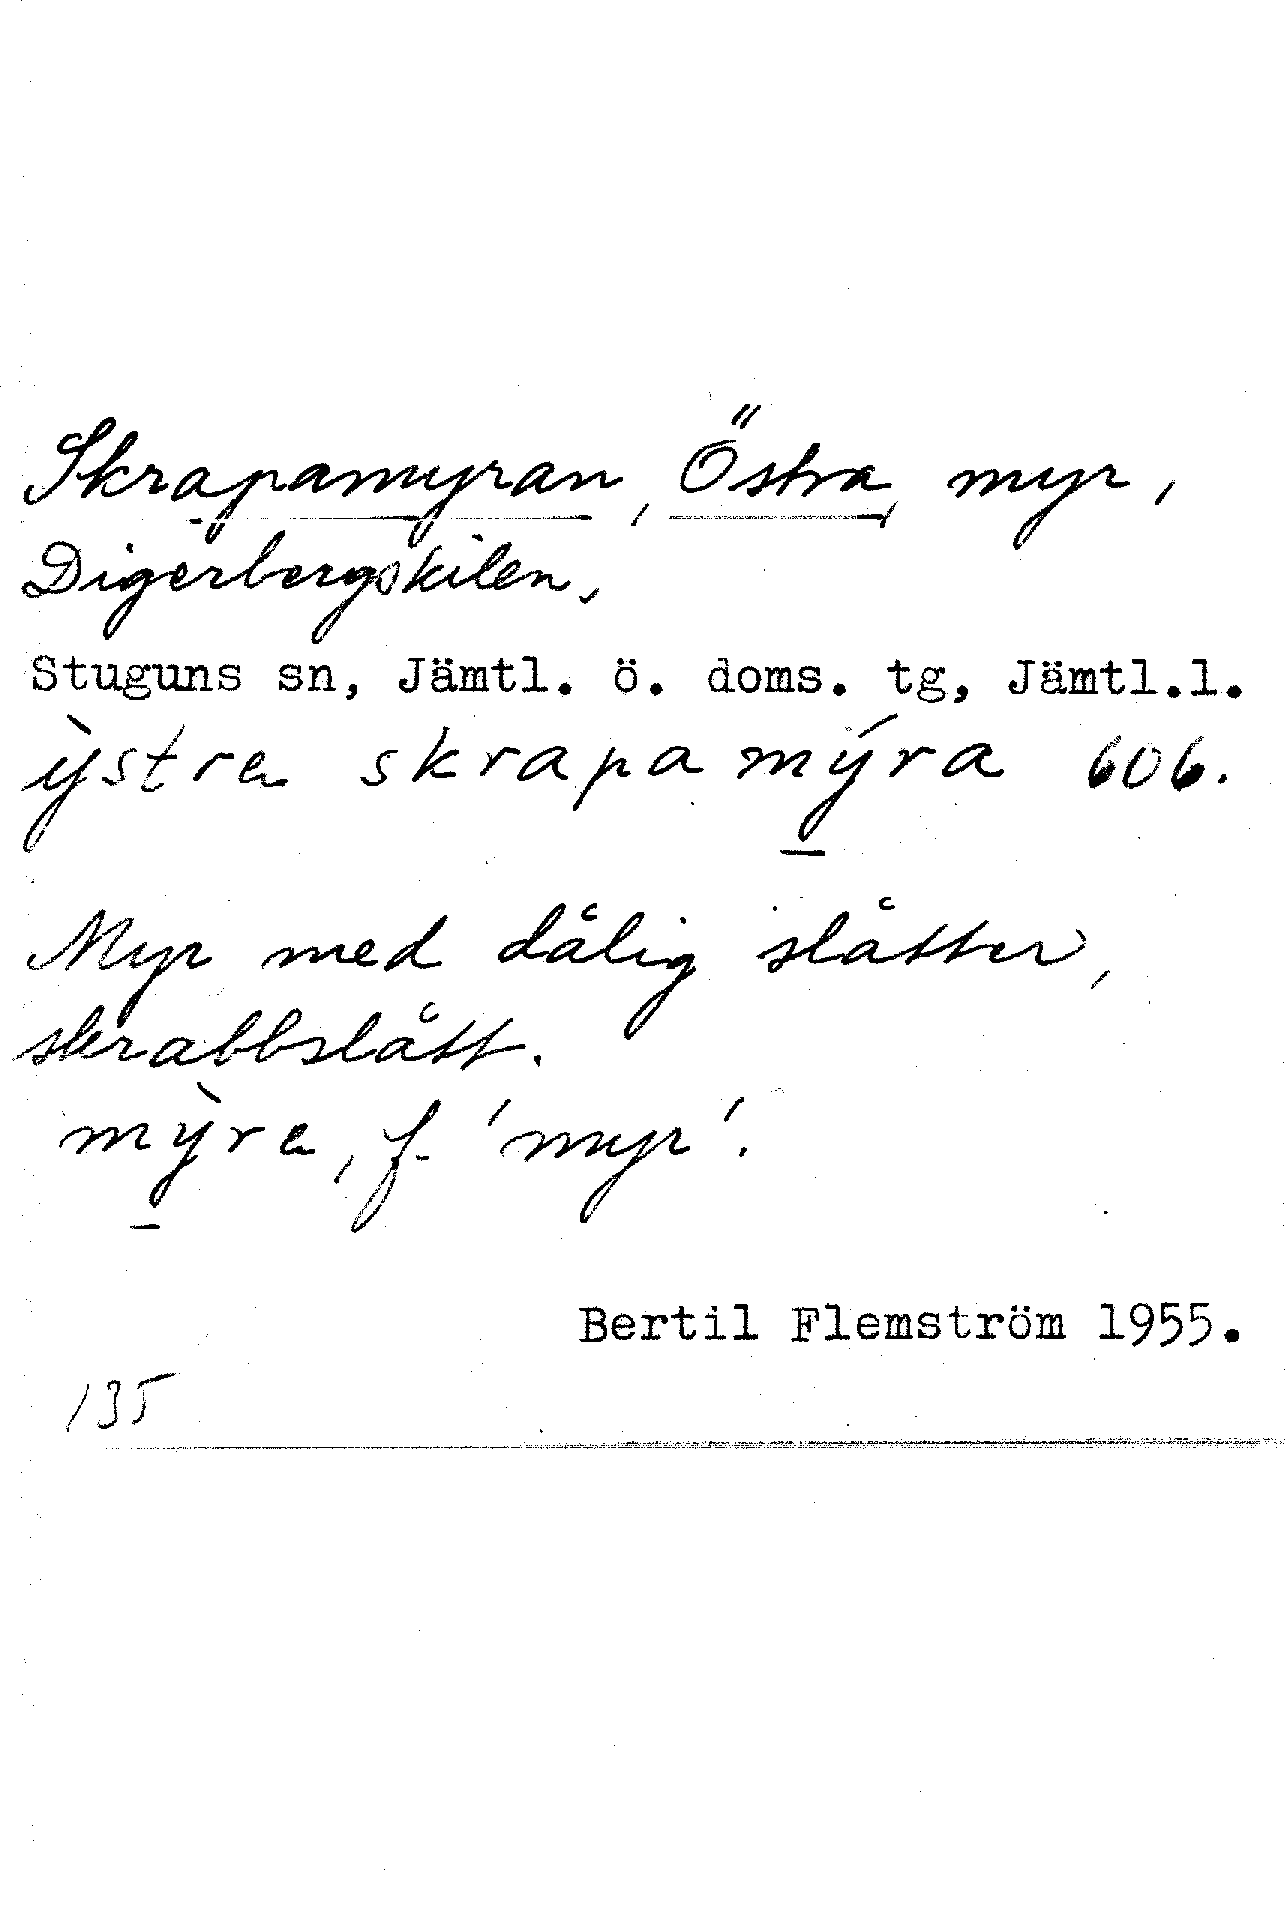 Skrapamyran, Östra, myr,
Digerbergskilen,
Stuguns sn, Jämtl. ö. doms. tg, Jämtl.l.
ỳstre skrapamýra 606.
Myr med dålig slåtter,
skrabbslått.
mỳre, f. 'myr'.
Bertil Flemström 1955.
135